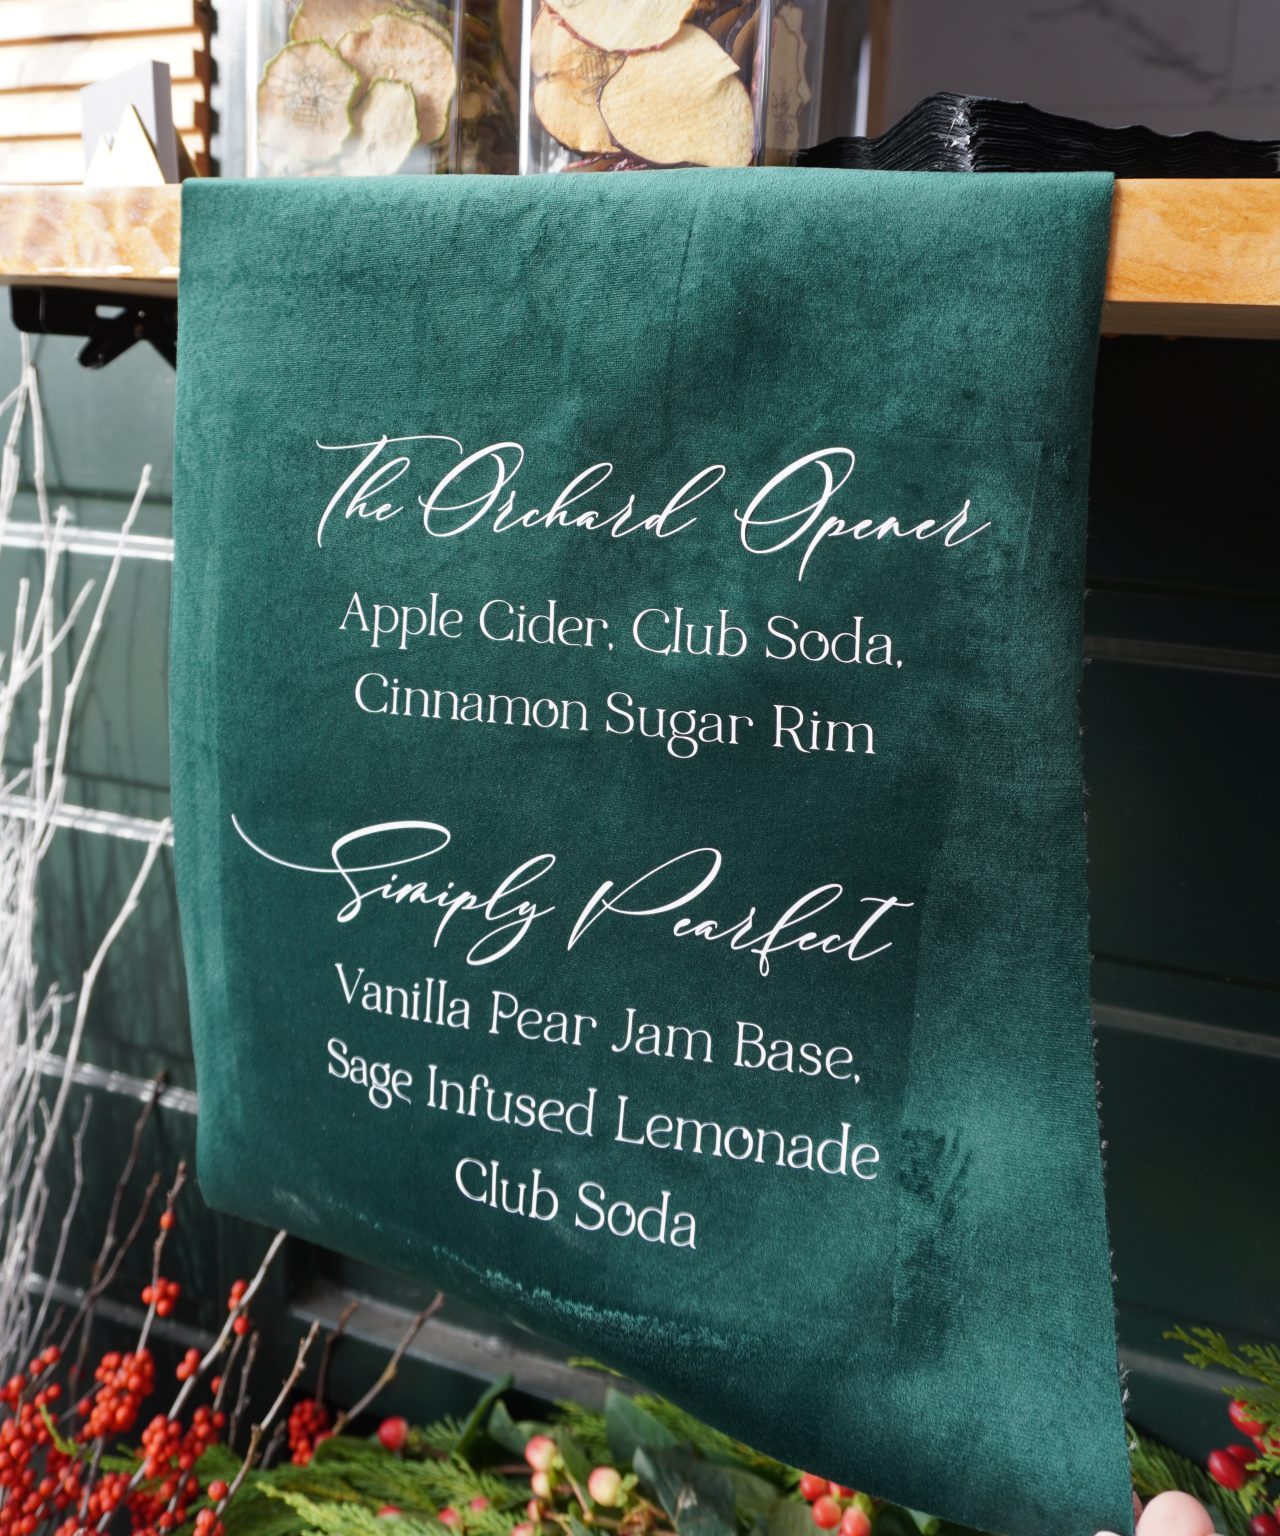 The Orchard Opener
Apple Cider, Club Soda,
Cinnamon Sugar Rim
Simiply Pearfect
Vanilla Pear Jam Base,
Sage Infused Lemonade
Club Soda